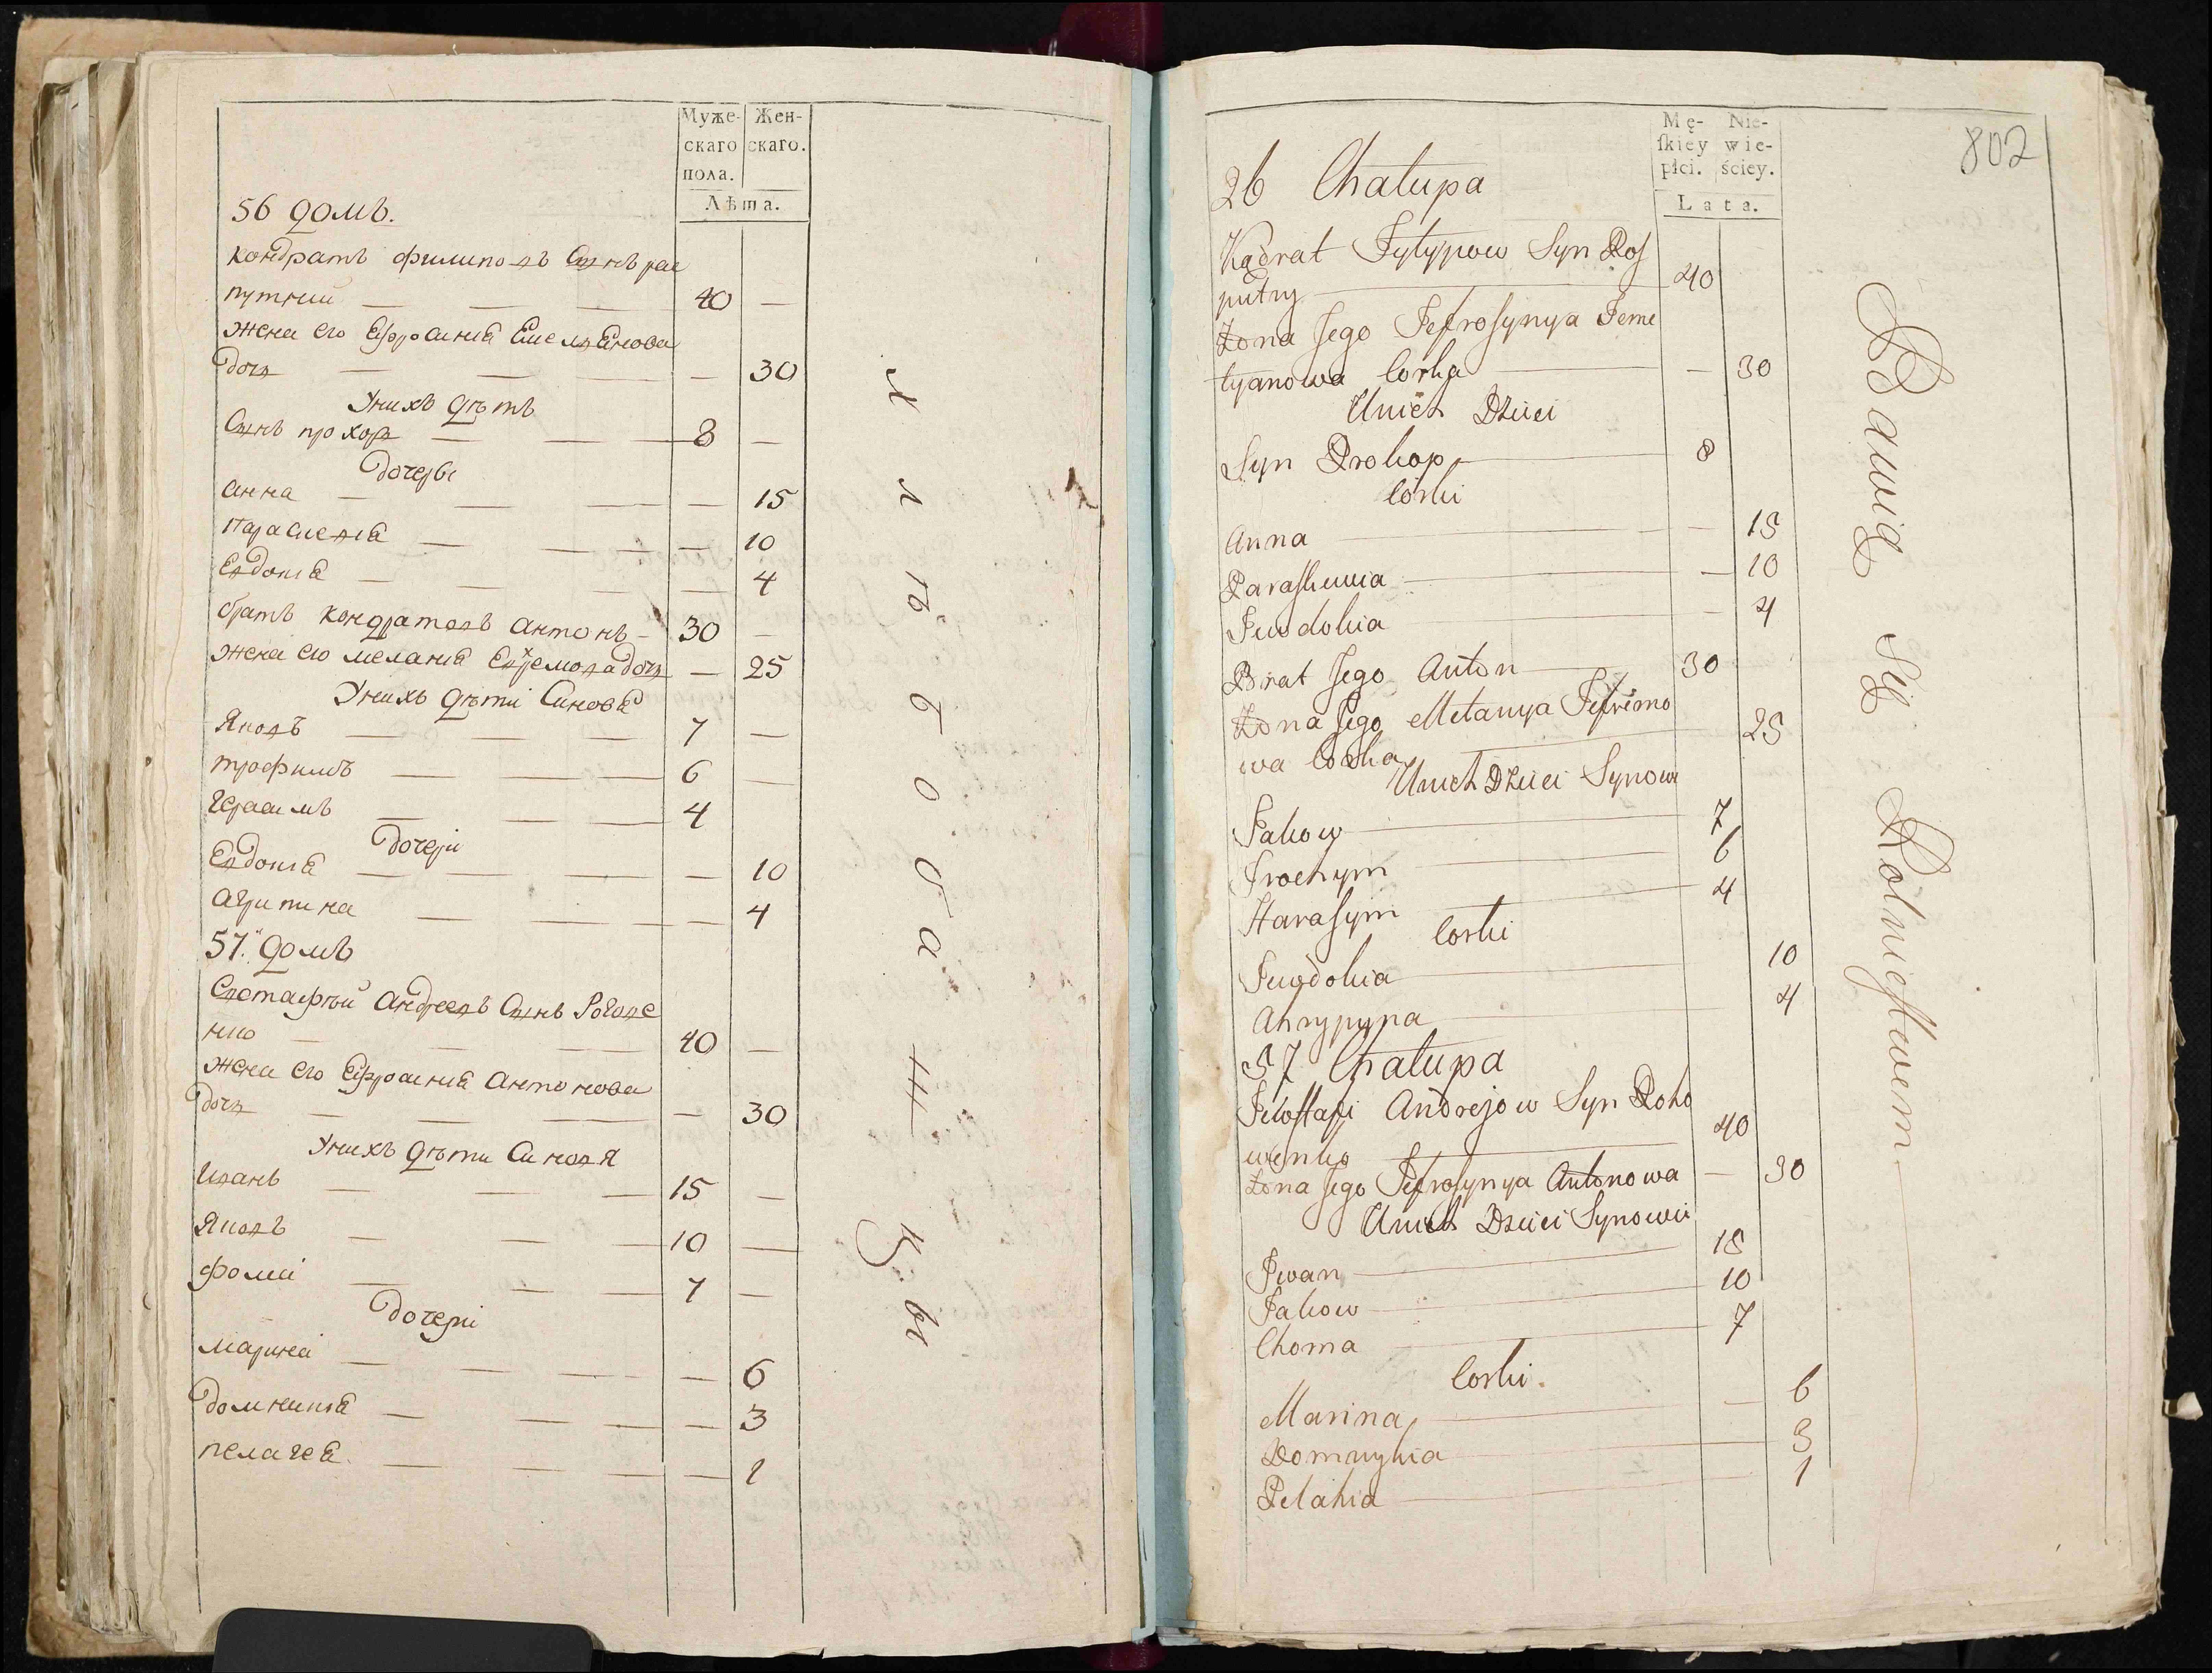 Муже-
скаго
пола.
Жен-
скаго.
Лѣта.
56 домъ.
кондратъ филиповъ Сынъ рас
путний 40
жена его Ефросиниа Емельянова
дочь 30
У нихъ дѣтъ
Сынъ прохоръ 8
дочерьи
анна 15
Парасковиа 10
Евдокиа 4
братъ кондратовъ антонъ 30
жена его меланиа Ефремова дочь 25
У нихъ дѣти Синовя
Яковъ 7
трофимъ 6
герасимъ 4
дочери
Евдокиа 10
агрипина 4
57. домъ
Евстафий Андреевъ Сынъ Рогове
нко 40
жена его Ефросиниа антонова
дочь 30
У нихъ дѣти Синовя
Иванъ 15
Яковъ 10
фома 7
дочери
марина 6
домникиа 3
пелагеа 1
Хлѣбопа
802
Mę-
ſkiey
płci.
Nie-
wie-
ściey.
Lata.
56 Chałupa
Kądrat Fyłypow Syn Ros
putny 40
Żona Jego Jefrosynya Jeme
lyanowa Corka 30
Unich Dzieci
Syn Prokop 8
Corki
Anna 15
Paraskewia 10
Jewdokia 4
Brat Jego Anton 30
Żona Jego Mełanya Jefremo
wa Corka 25
Unich Dzieci Synowi
Jakow 7
Trochym 6
Harasym 4
Corki
Jewdokia 10
Ahrypyna 4
57 Chałupa
Jewstafi Andrejow Syn Roho
wenko 40
Żona Jego Jefrosynya Antonowa 30
Unich Dzieci Synowie
Iwan 15
Jakow 10
Choma 7
Corki
Marina 6
Domnykia 3
Pelahia 1
Bawią Się Rolnictwem